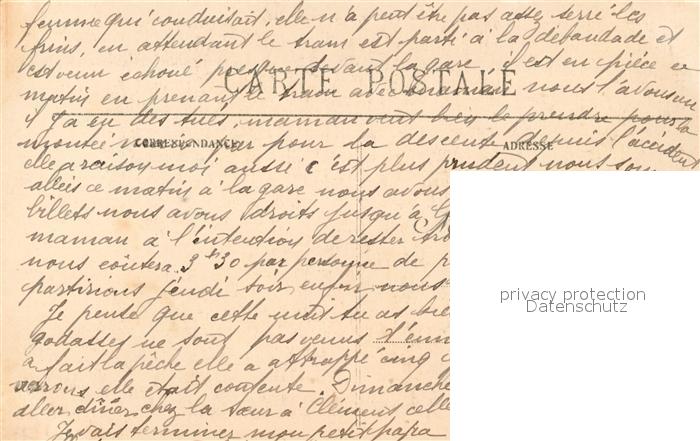 femme qui conduisait, elle n'a peut être pas assez serré les
freins, en attendant le tram est parti à la débandade et
est venu échoué presque devant la gare il est en pièce ce
matin en prenant le train avec maman nous l'avons vu
CARTE POSTALE
Il y a eu des tués, maman veut bien le prendre pour la
montée mais pour la descente depuis l'accident
CORRESPONDANCE
ADRESSE
elle a raison moi aussi c'est plus prudent nous sommes
allées ce matin à la gare nous avons
billets nous avons droits jusqu'à
maman a l'intention de rester
nous coûtera 3 f 30 par personne de
partirions jeudi soir enfin nous
Je pense que cette nuit tu as
godasses ne sont pas venus t'
a fait la pêche elle a attrappé cinq
verrons elle était contente. Dimanche
aller dîner chez la sœur à Clément celle
Je vais terminer mon petit papa
privacy protection
Datenschutz